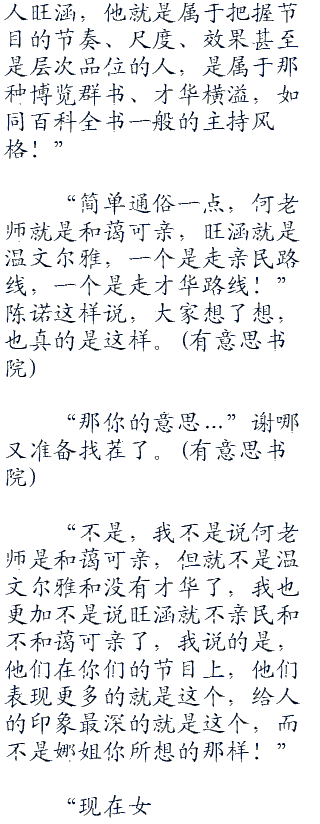 人旺涵，他就是属于把握节
目的节奏、尺度、效果甚至
是层次品位的人，是属于那
种博览群书、才华横溢，如
同百科全书一般的主持风
格！”
“简单通俗一点，何老
师就是和蔼可亲，旺涵就是
温文尔雅，一个是走亲民路
线，一个是走才华路线！”
陈诺这样说，大家想了想，
也真的是这样。(有意思书
院)
“那你的意思...”谢哪
又准备找茬了。(有意思书
院)
“不是，我不是说何老
师是和蔼可亲，但就不是温
文尔雅和没有才华了，我也
更加不是说旺涵就不亲民和
不和蔼可亲了，我说的是，
他们在你们的节目上，他们
表现更多的就是这个，给人
的印象最深的就是这个，而
不是娜姐你所想的那样！”
“现在女